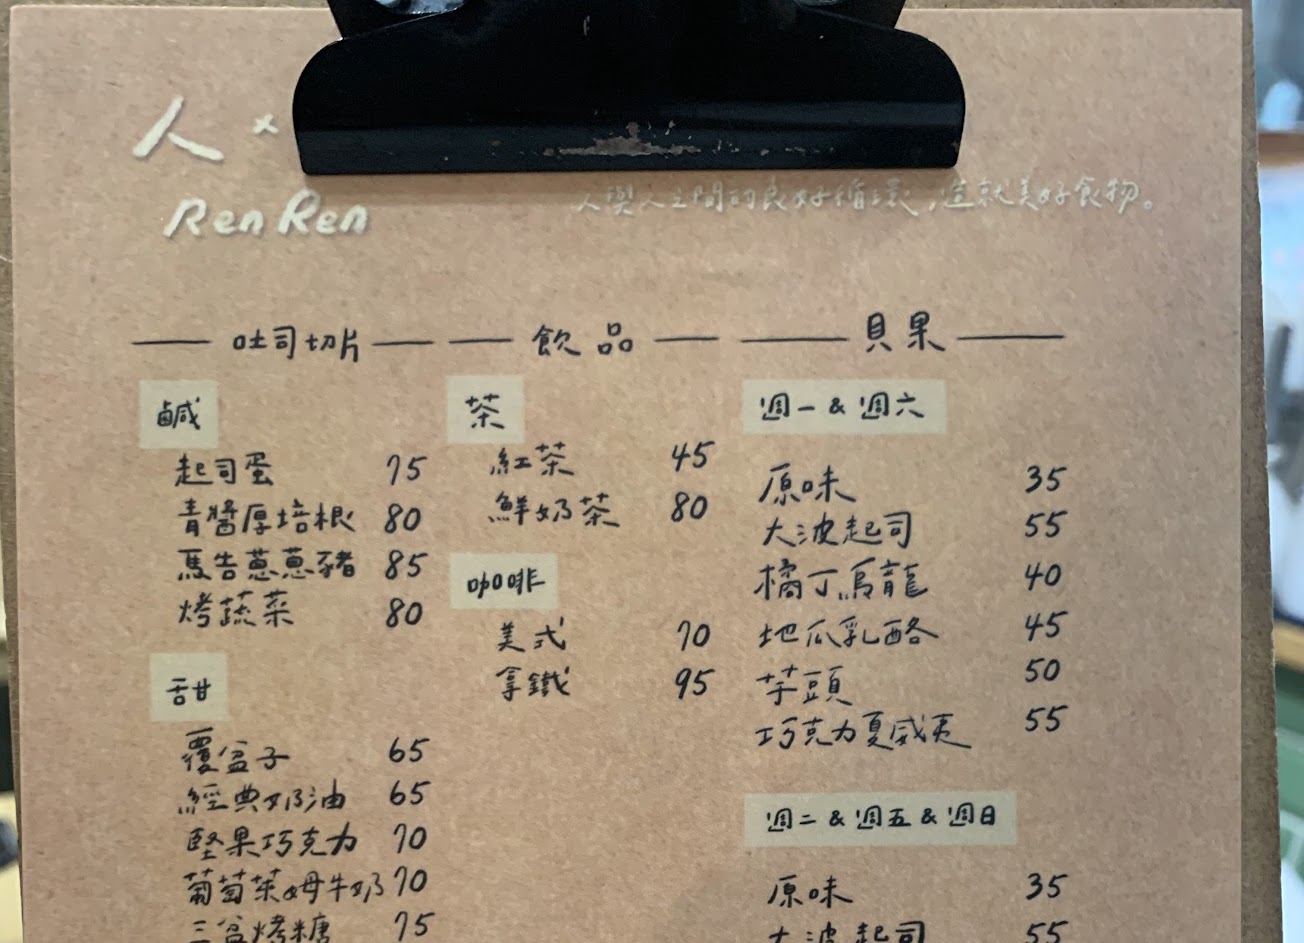 人 ×
Ren Ren
人與人之間的良好循環，造就美好食物。
吐司切片
鹹
起司蛋 75
青醬厚培根 80
馬告蔥蔥豬 85
烤蔬菜 80
甜
覆盆子 65
經典奶油 65
堅果巧克力 70
葡萄茱姆牛奶 70
三盆烤糖 75
飲品
茶
紅茶 45
鮮奶茶 80
咖啡
美式 70
拿鐵 95
貝果
週一 & 週六
原味 35
大波起司 55
橘丁烏龍 40
地瓜乳酪 45
芋頭 50
巧克力夏威夷 55
週二 & 週五 & 週日
原味 35
大波起司 55